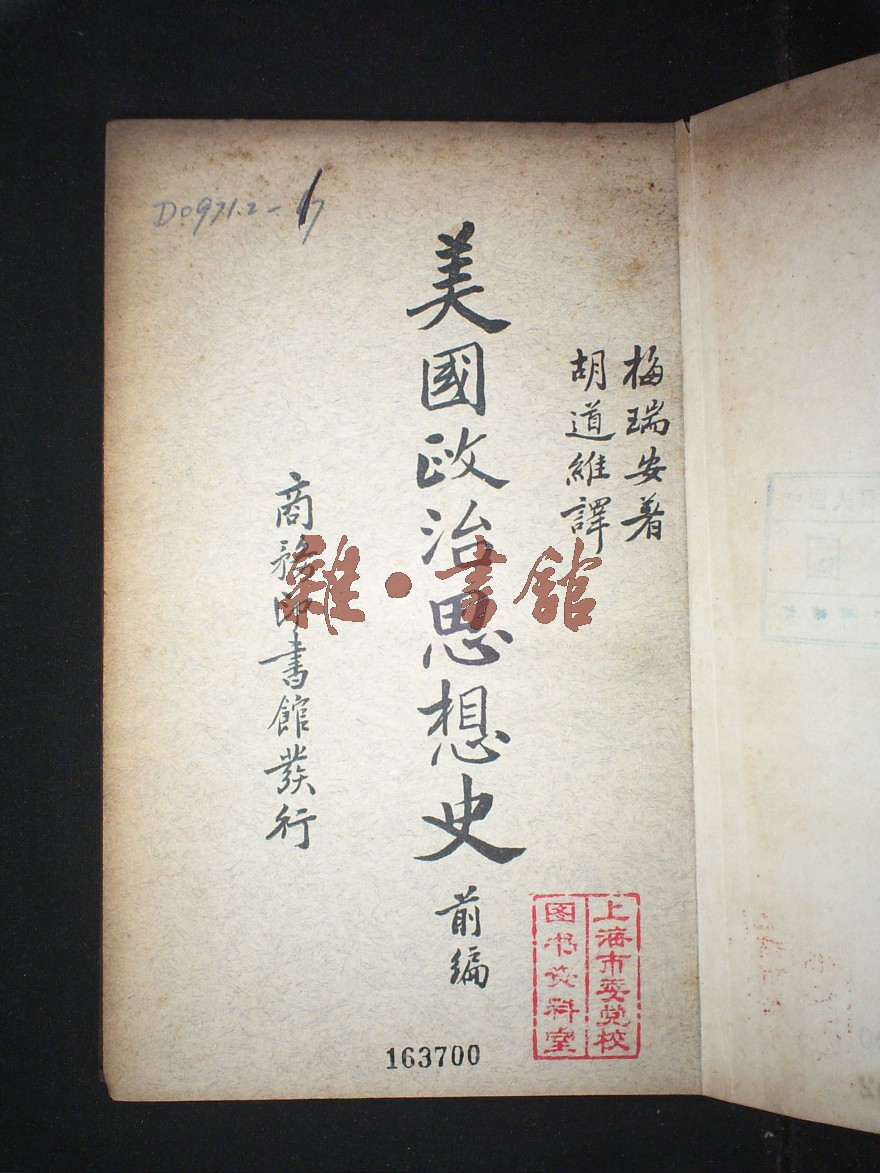 D0971.2-
梅瑞安著
胡道維譯
美國政治思想史 前編
商務印書館發行
雜·書館
上海市委党校
图书资料室
163700